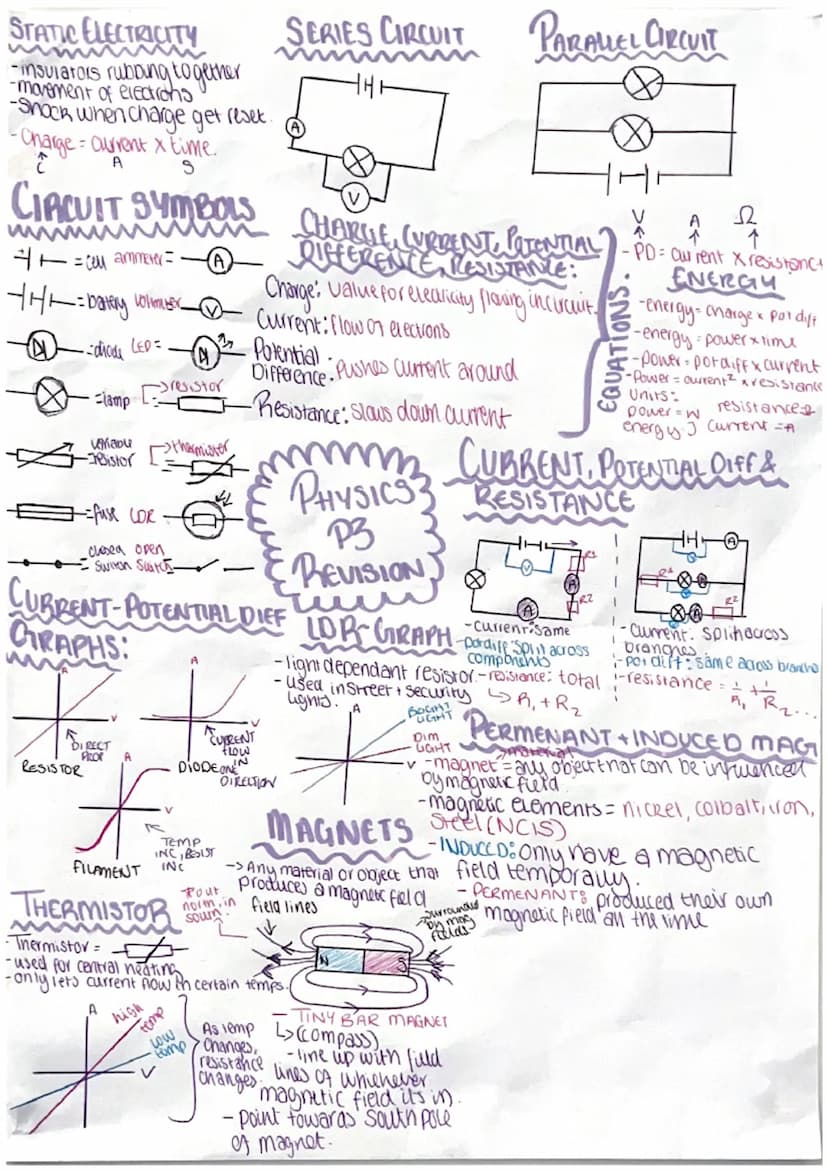 STATIC ELECTRICITY
-insulators rubbing together
-movement of electrons
-Shock when charge get reset.
-Charge = current x time.
C A S
SERIES CIRCUIT
A
V
PARALLEL CIRCUIT
CIRCUIT SYMBOLS
=cell ammeter= A
=battery voltmeter V
=diode LED=
=lamp resistor
variable
=resistor thermistor
=fuse LDR
closed open
=switch switch
CHARGE, CURRENT, POTENTIAL
DIFFERENCE, RESISTANCE:
Charge: value for electricity flowing in circuit.
Current: flow of electrons
Potential
Difference. pushes current around
Resistance: slows down current
EQUATIONS.
V A Ω
- PD= current x resistance
ENERGY
-energy=charge x pot diff
-energy=power x time
-power=pot diff x current
-Power=current² x resistance
units:
power=W resistance Ω
energy J current =A
PHYSICS
P3
REVISION
CURRENT, POTENTIAL DIFF &
RESISTANCE
V R1
A
A R2
-current:same
-pot diff:split across
components
-resistance: total
↳ R₁ + R₂
A
R1 A
A R2
-current. split across
branches
-pot diff: same across branche
-resistance = 1/R₁ + 1/R₂...
CURRENT-POTENTIAL DIFF
GRAPHS:
A
V
DIRECT
PROP
RESISTOR
A
V
CURRENT
FLOW
IN
ONE
DIRECTION
DIODE
A
V
TEMP
INC, RESIST
INC
FILAMENT
LDR-GRAPH
-light dependant resistor.
-used in street + security
lights.
A
BRIGHT
LIGHT
DIM
LIGHT
V
PERMENANT + INDUCED MAG
material
-magnet =any object that can be influenced
by magnetic field.
-magnetic elements = nickel, colbalt, iron,
Steel (NCIS)
-INDUCED: only have a magnetic
field temporally.
-PERMENANT: produced their own
magnetic field all the time
MAGNETS
-> Any material or object that
produces a magnetic field
field lines
out
norm, in
south.
surrounded
by mag
fields
N S
- TINY BAR MAGNET
↳(compass)
-line up with field
lines of whichever
magnetic field its in.
-point towards South pole
of magnet.
THERMISTOR
-Thermistor=
-used for central heating
-only lets current flow in certain temps.
A
high
temp
low
temp
V
As temp
changes,
resistance
changes.